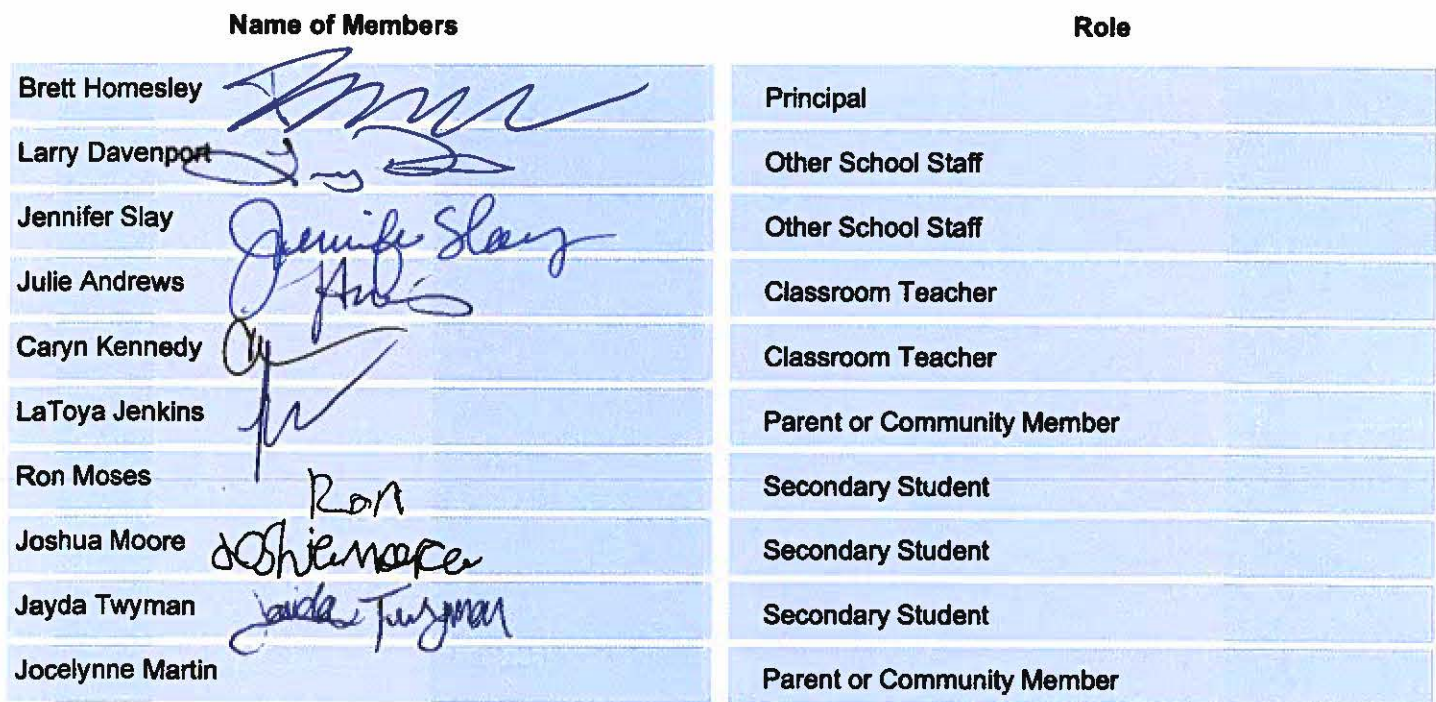 Name of Members Role
Brett Homesley Principal
Larry Davenport Other School Staff
Jennifer Slay Jennifer Slay Other School Staff
Julie Andrews Classroom Teacher
Caryn Kennedy Classroom Teacher
LaToya Jenkins Parent or Community Member
Ron Moses Ron Secondary Student
Joshua Moore Secondary Student
Jayda Twyman Jayda Twyman Secondary Student
Jocelynne Martin Parent or Community Member